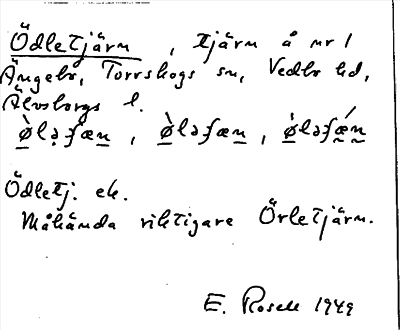 Ödletjärn, tjärn å nr 1
Ängebo, Torrskogs sn, Vedbo hd,
Älvsborgs l.
ø̀ləʃæn, ø̀ləʃæn, ø̀ləʃæ̀n
Ödletj. ek.
Måhända riktigare Örletjärn.
E. Rosell 1949